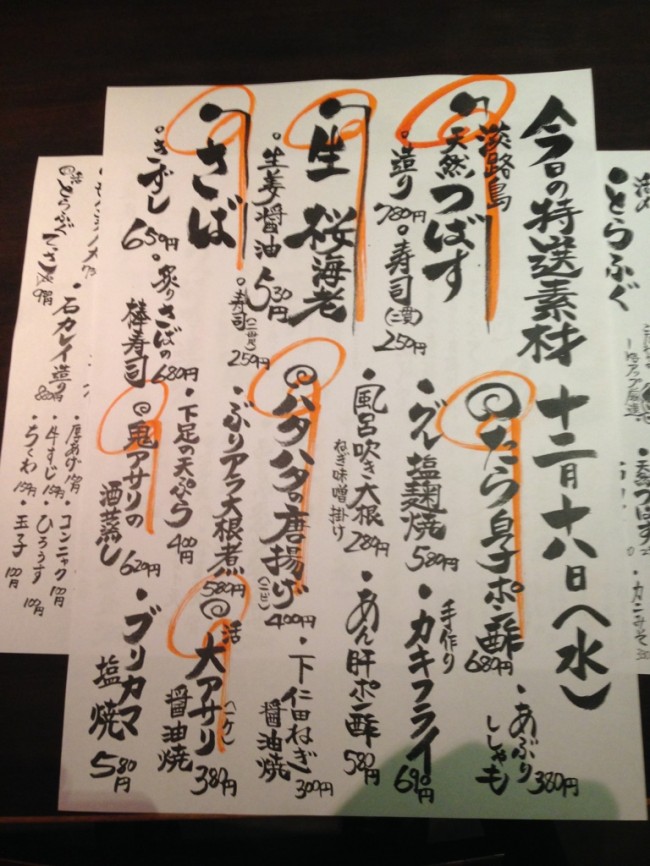 今日の特選素材 十二月十八日(水)
淡路島
天然つばす
造り 780円
寿司(二貫) 250円
生桜海老
生姜醤油 530円
寿司(二貫) 250円
さば
きずし 650円
炙りさばの棒寿司 680円
たら白子ポン酢 680円
あぶりししゃも 380円
グレ塩麹焼 580円
手作りカキフライ 690円
風呂吹き大根 280円
ねぎ味噌掛け
あん肝ポン酢 580円
ハタハタの唐揚げ 400円
下仁田ねぎ醤油焼 300円
ぶりアラ大根煮 580円
活大アサリ醤油焼 380円
下足の天ぷら 400円
鬼アサリの酒蒸し 620円
ブリカマ塩焼 580円
とらふぐ
カニみそ
とらふぐてっさ
石カレイ造り 880円
厚あげ
コンニャク 100円
牛すじ
ひろうす 100円
ちくわ
玉子 100円